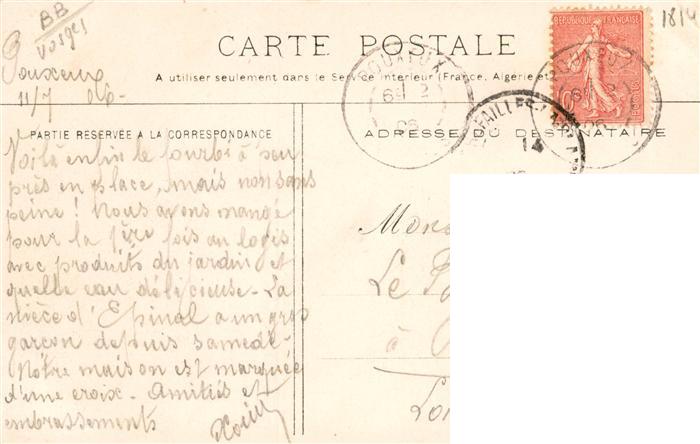 BB
Vosges
1814
CARTE POSTALE
A utiliser seulement dans le Service intérieur (France, Algérie et
RÉPUBLIQUE FRANÇAISE
POSTES
POUXEUX
POUXEUX
14
Pouxeux
11/7 06-
PARTIE RÉSERVÉE A LA CORRESPONDANCE
ADRESSE DU DESTINATAIRE
Voilà enfin le fourbi à peu
près en place, mais non sans
peine! Nous avons mangé
pour la 1ère fois au logis
avec produits du jardin et
quelle eau délicieuse - La
nièce d'Epinal a un gros
garçon depuis samedi-
Notre maison est marquée
d'une croix - Amitiés et
embrassements
Le
à